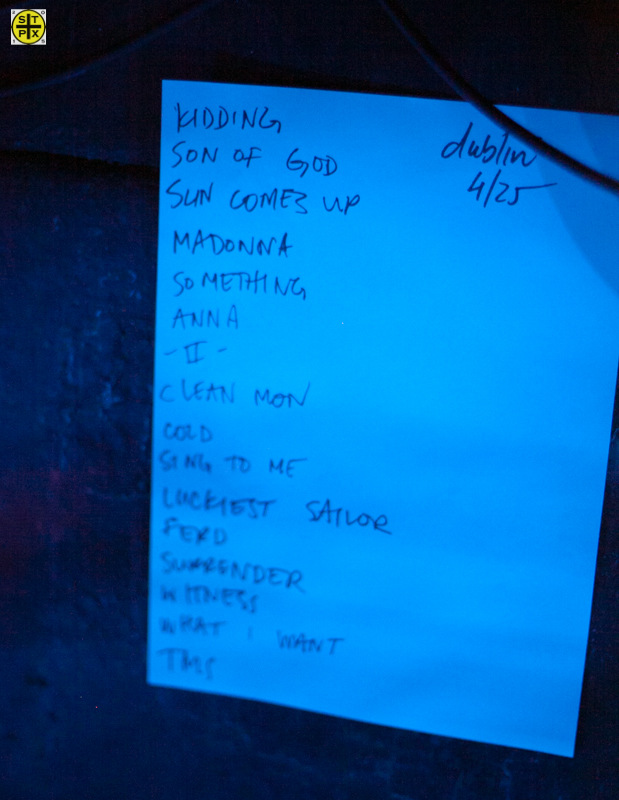 S T
P X
KIDDING
dublin
SON OF GOD
4/25
SUN COMES UP
MADONNA
SOMETHING
ANNA
- II -
CLEAN MON
COLD
SING TO ME
LUCKIEST SAILOR
FERD
SURRENDER
WITNESS
WHAT I WANT
TMS